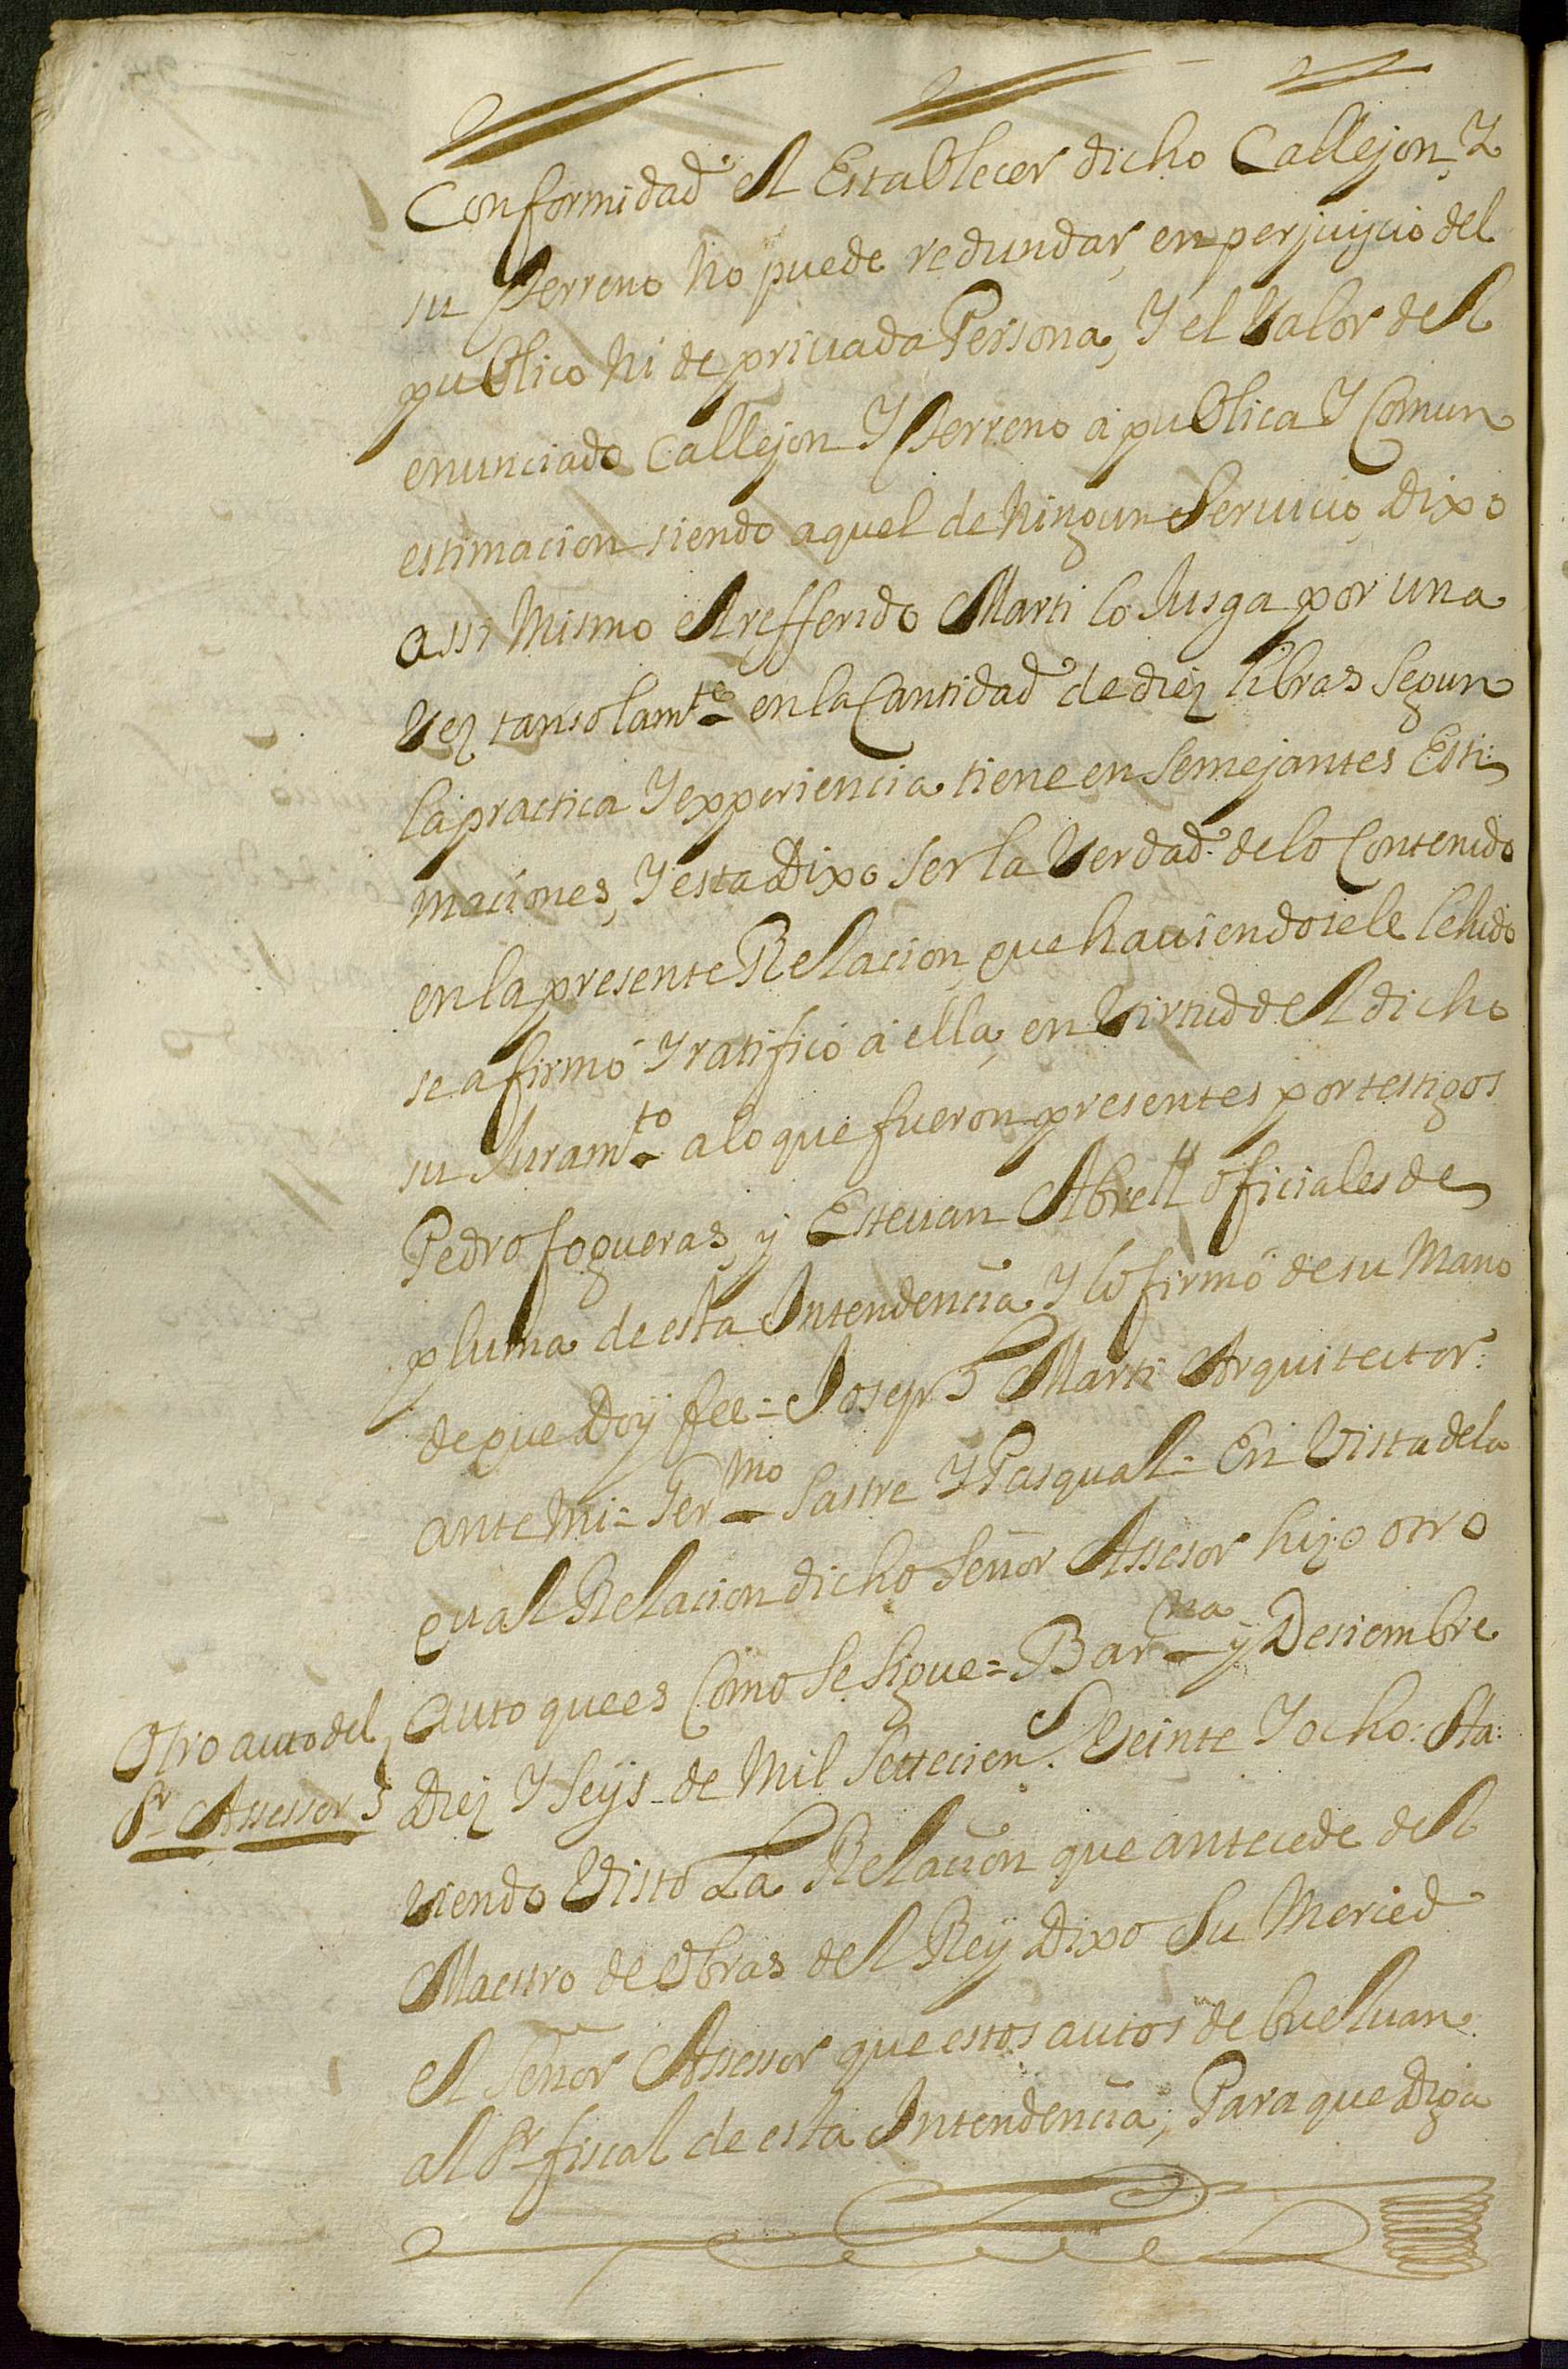 Conformidad el Establecer dicho Callejon, Y
su Terreno no puede redundar, en perjuycio del
publico ni de priuada Persona, Y el Valor del
enunciado Callejon Y Terreno á publica Y Comun
estimacion siendo aquel de Ningun Seruicio, Dixo
assi Mismo el refferido Marti lo Jusga por una
Vez tansolamte en la Cantidad de diez libras Segun
la practica Y experiencia tiene en Semejantes Esti:
maciones, Y esta Dixo Ser la Verdad de lo Contenido
en la presente Relacion, que hauiendosele lehido
se afirmó Y ratificó á ella, en Virtud del dicho
su Juramto a lo que fueron presentes por testigos
Pedro fogueras, y Esteuan Abrell oficiales de
pluma de esta Intendencia Y lo firmó de su Mano
de que Doy fee = Joseph Marti Arquitector:
ante Mi = Germo Sastre Y Pasqual = En Vista de la
qual Relacion dicho Señor Assesor hizo otro
Auto que es Como Se Sigue = Barna y Desiembre
Diez Y Seys de Mil Setteciens. Veinte Y ocho: Ha:
viendo Visto La Relacion que antecede del
Maestro de Obras del Rey Dixo Su Merced
el Señor Assessor que estos autos se buelvan
al Sr fiscal de esta Intendencia; Para que Diga
Otro auto del
Sr Assessor